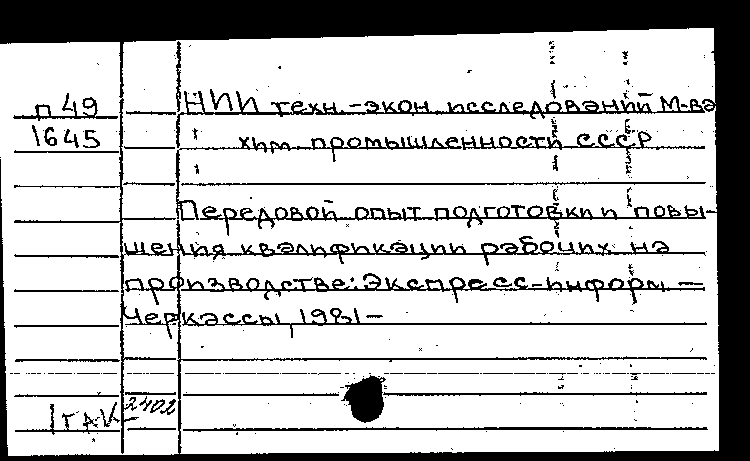 п 49 НИИ техн.-экон. исследований М-ва
1645 хим. промышленности СССР
Передовой опыт подготовки и повы-
шения квалификации рабочих на
производстве: Экспресс-информ. —
Черкассы, 1981 –
2402